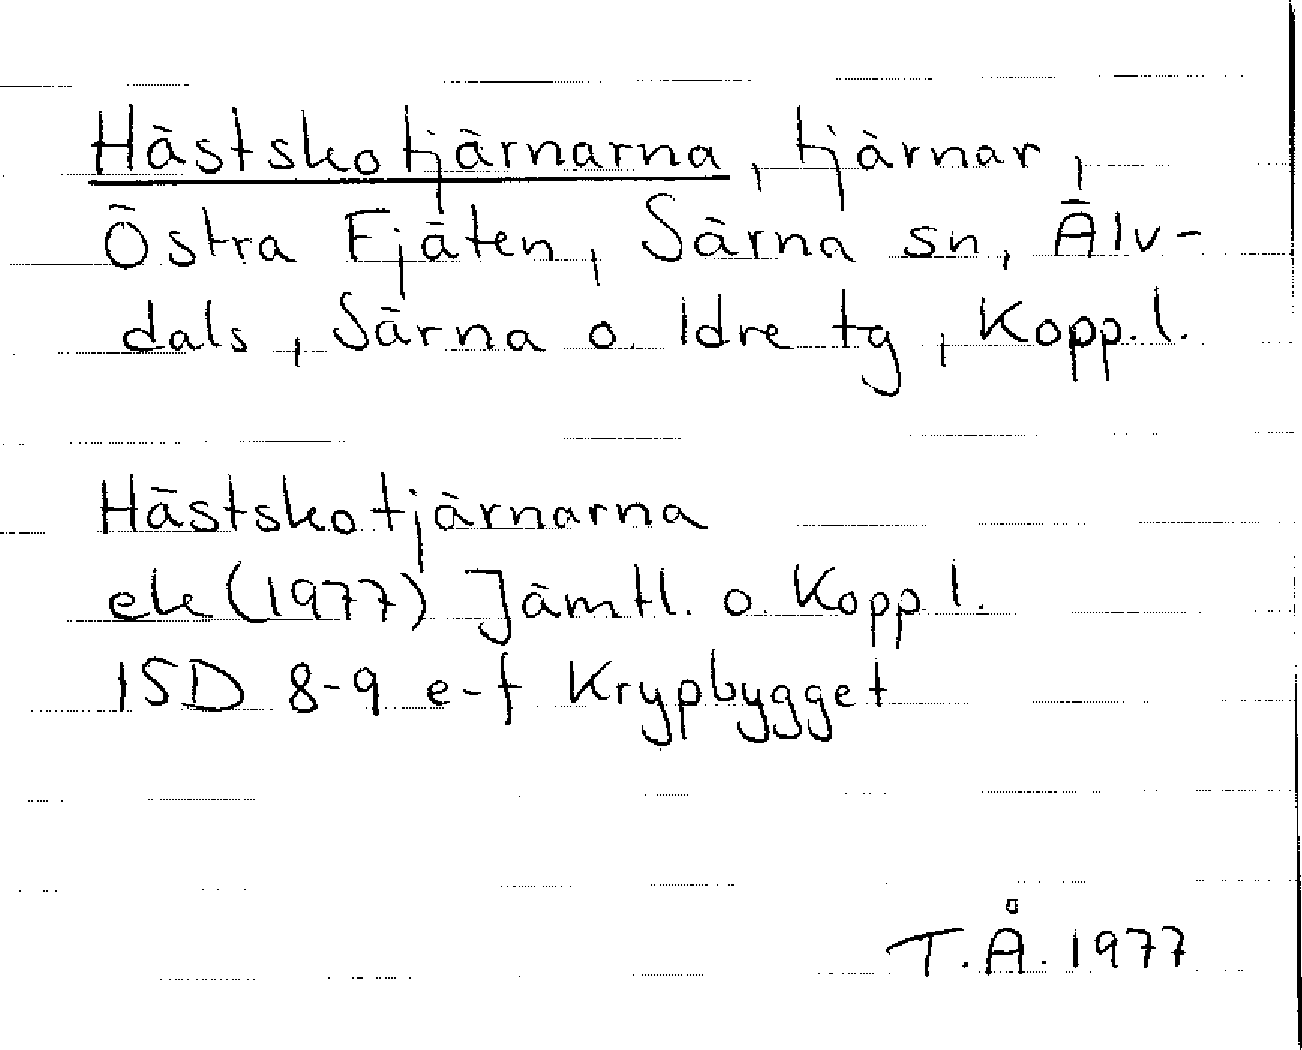 Hästskotjärnarna, tjärnar,
Östra Fjäten, Särna sn, Älv-
dals, Särna o. Idre tg, Kopp. l.
Hästskotjärnarna
ek (1977) Jämtl. o. Kopp l.
1SD 8-9 e-f Krypbygget
T.Å. 1977